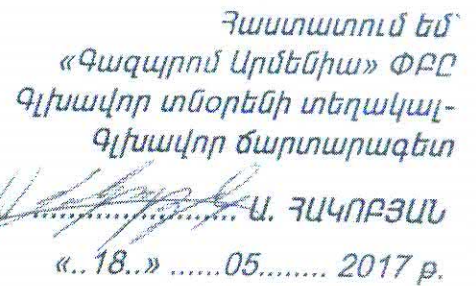 Հաստատում եմ՝
«Գազպրոմ Արմենիա» ՓԲԸ
Գլխավոր տնօրենի տեղակալ-
Գլխավոր ճարտարագետ
........................ Ա. ՀԱԿՈԲՅԱՆ
«..18..» ......05........ 2017 թ.